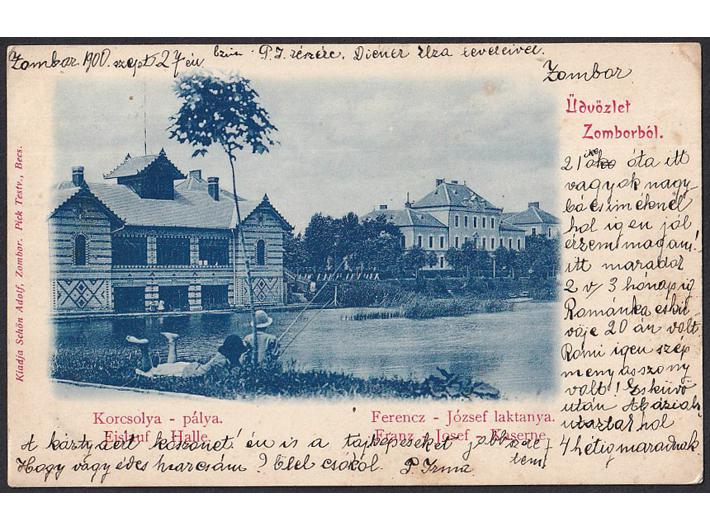 Zombor 1900. szept 27 én
P. I. részére, Diener Elza leveleivel.
Zombor
Üdvözlet
Zomborból.
21 óta itt
vagyok nagy-
bácsiméknél
hol igen jól
érzem magam!
itt maradok
2 v 3 honapig
Románka eskü-
vője 20 án volt
Romi igen szép
menyasszony
volt! Esküvő
után Abáziába
utaztak hol
4 hétig maradnak
Korcsolya - pálya.
Eislauf - Halle.
Ferencz - József laktanya.
Franz - Josef - Kaserne.
A kártyáért köszönet! én is a tájképeket jobban
Hogy vagy édes huzcsám? Ölel csókol P. Irma
Kiadja Schön Adolf, Zombor. Pick Testv., Becs.